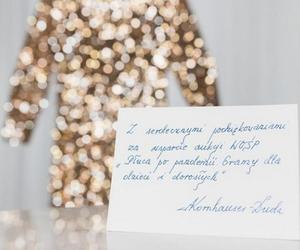 Z serdecznymi podziękowaniami
za wsparcie aukcji WOŚP
„Płuca po pandemii Gramy dla
dzieci i dorosłych”
AKornhauser-Duda